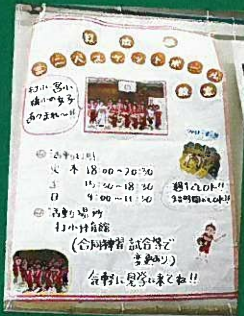 ミニバスケットボール
教室
村小 宮小
橋小の女子
あつまれ〜!!
◎活動日時
火 木 18:00〜20:30
土 15:30〜18:30
日 9:00〜11:30
◎活動場所
村小体育館
(合同練習 試合等で
変更あり)
気軽に見学に来てね!!